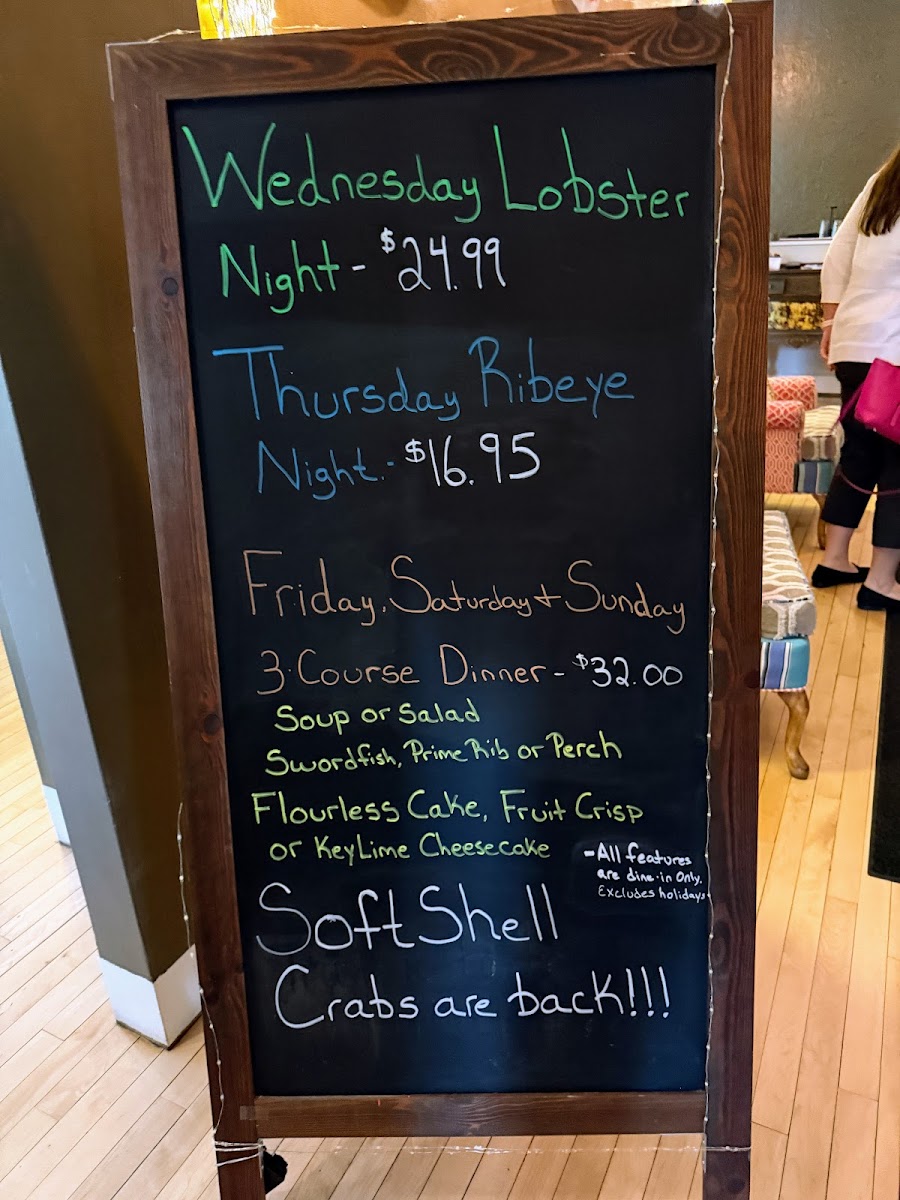 Wednesday Lobster
Night - $24.99
Thursday Ribeye
Night. - $16.95
Friday, Saturday + Sunday
3-Course Dinner - $32.00
Soup or Salad
Swordfish, Prime Rib or Perch
Flourless Cake, Fruit Crisp
or Key Lime Cheesecake
- All features
are dine-in Only.
Excludes holidays
Soft Shell
Crabs are back!!!